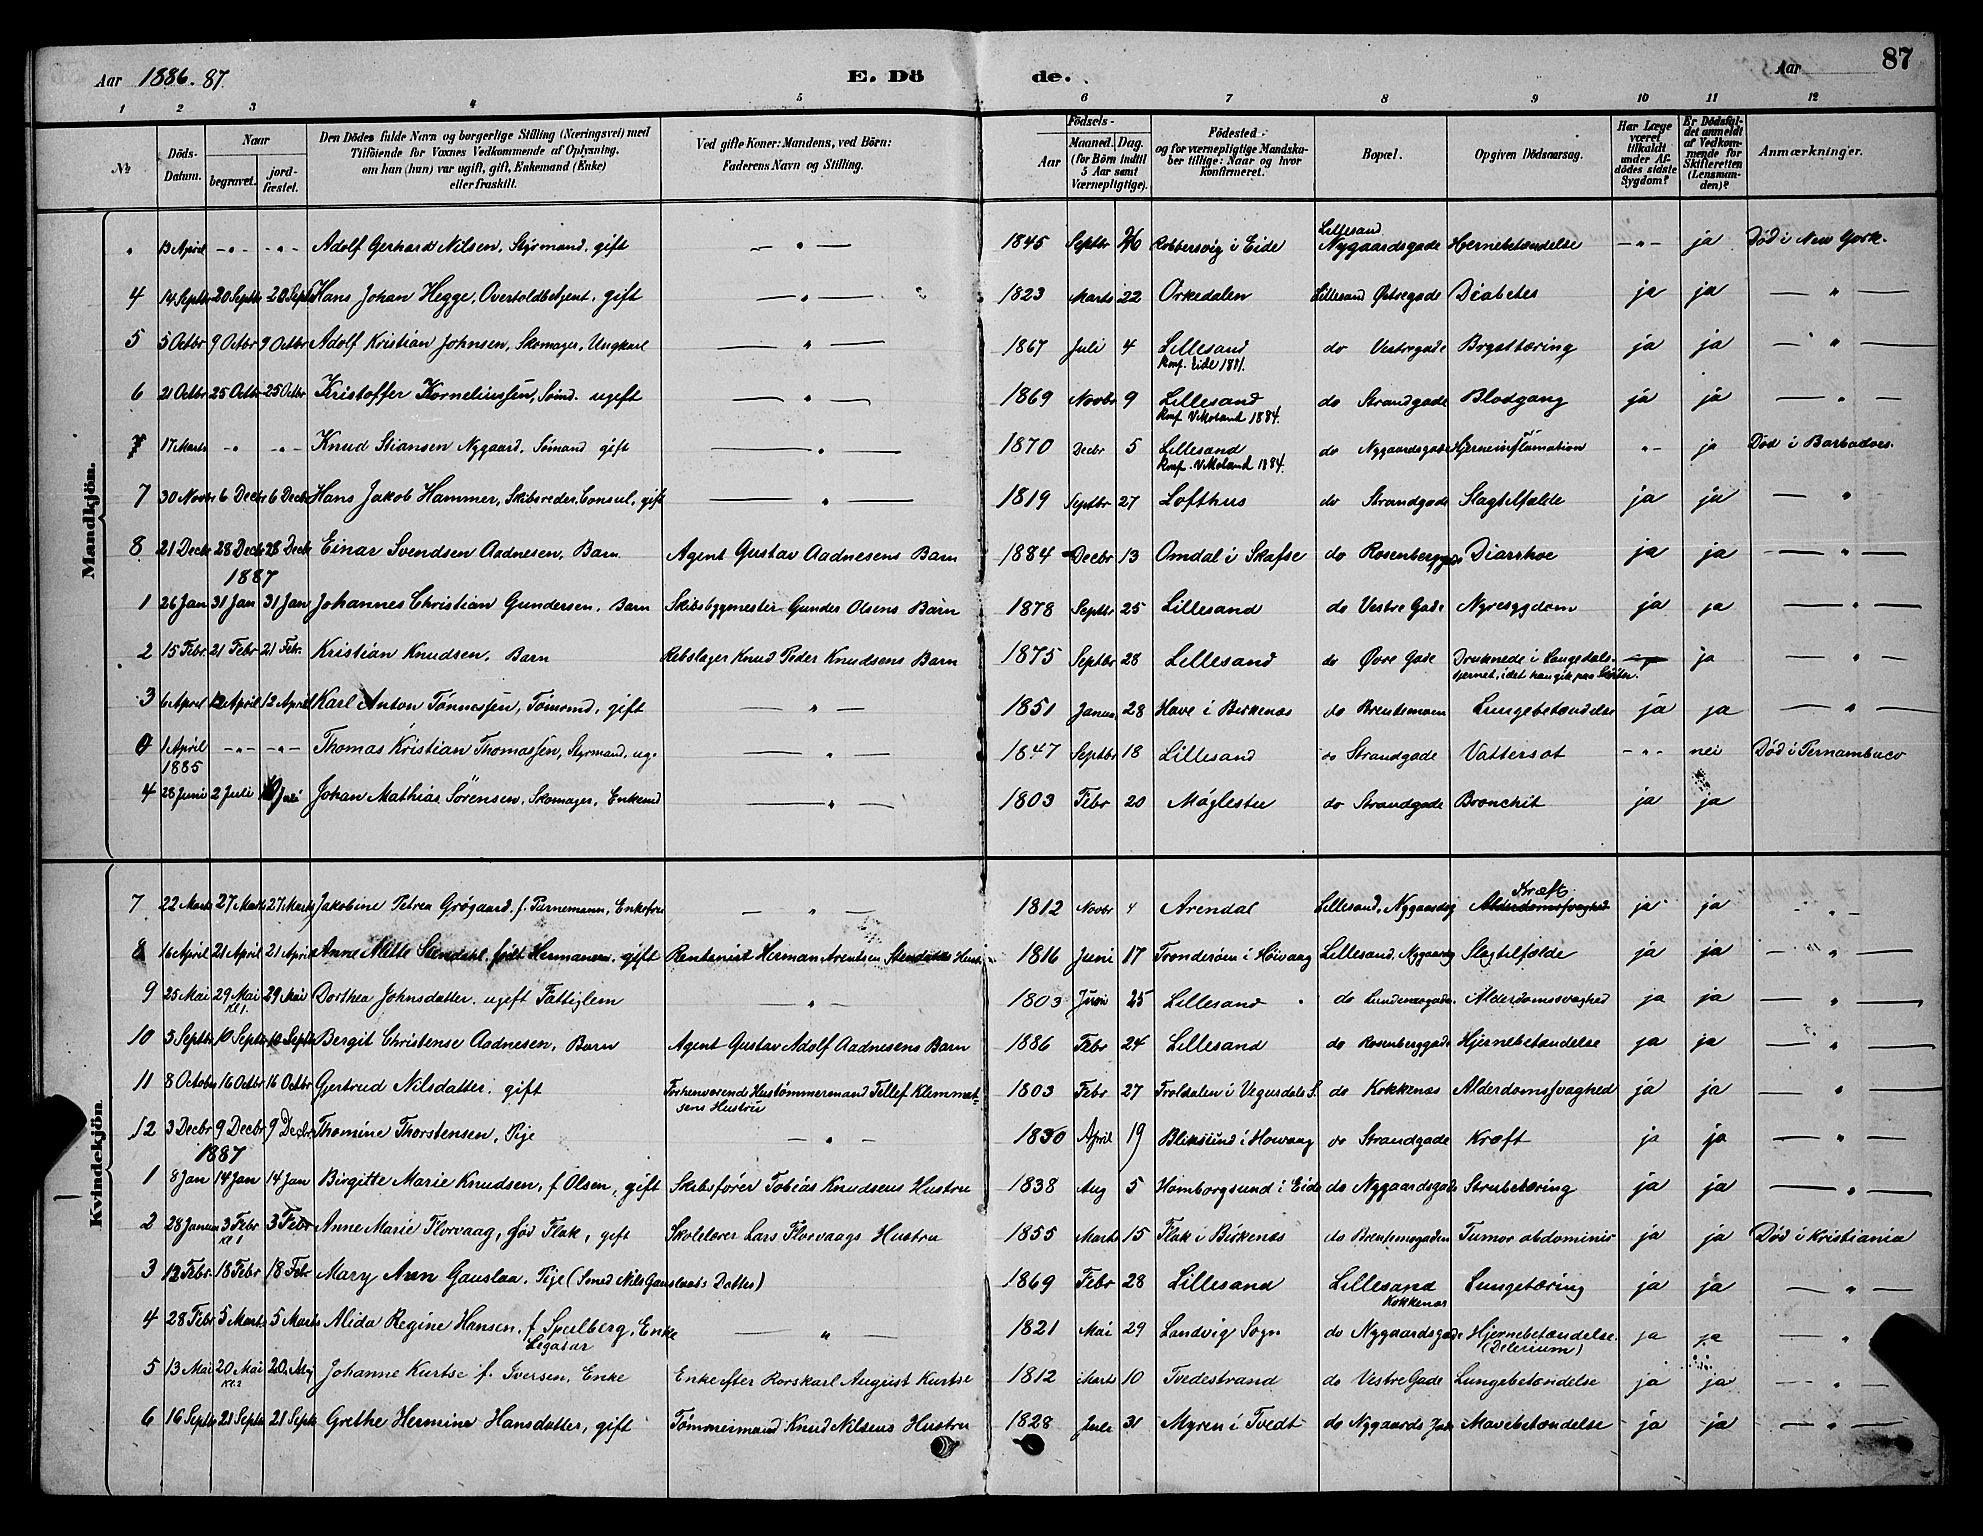 Aar 1886.87. E. Dö de. Aar 87
1 2 3 4 5 6 7 8 9 10 11 12
№ Döds-Datum. Naar begravet. jord-fæstet. Den Dödes fulde Navn og borgerlige Stilling (Næringsvei) med Tilföiende for Voxnes Vedkommende af Oplysning, om han (hun) var ugift, gift, Enkemand (Enke) eller fraskilt. Ved gifte Koner: Mandens, ved Börn: Faderens Navn og Stilling. Födsels- Aar Maaned. Dag. (for Börn indtil 5 Aar samt Værnepligtige). Födested og for værnepligtige Mandskaber tillige: Naar og hvor konfirmeret. Bopæl. Opgiven Dödsaarsag. Har Læge været tilkaldt under Afdödes sidste Sygdom? Er Dödsfaldet anmeldt af Vedkommende for Skifteretten (Lensmanden)? Anmærkninger.
Mandkjön.
" 13 April -"- -"- Adolf Gerhard Nilsen, Styrmand, gift — " — 1845 Septbr Robbersvig i Eide Lillesand Nygaardsgade Hernebetændelse -"- ja Död i New York.
4 14 Septbr 20 Septbr 20 Septbr Hans Johan Hegge, Overtoldbetjent, gift — " — 1823 Marts 22 Orkedalen Lillesand Østregade Diabetes ja ja — " —
5 5 Octbr 9 Octbr 9 Octbr Adolf Kristian Johnsen, Skomager, Ungkarl — " — 1867 Juli 4 Lillesand do Vestregade Brysttæring ja ja " —
Konf. Eide 1881.
6 21 Octbr 25 Octbr 25 Octbr Kristoffer Korneliussen, Sömd. ugift — " — 1869 Novbr 9 Lillesand do Strandgade Blodgang ja ja — " —
Konf. V.Moland 1884.
17 Marts -"- -"- Knud Stiansen Nygaard, Sömand gift — " — 1870 Decbr 5 Lillesand do Nygaardsgade Hjerneinflamation "- ja Död i Barbadoes.
Konf. V.Moland 1884.
7 30 Novbr 6 Decbr 6 Decbr Hans Jakob Hammer, Skibsreder, Consul, gift — " — 1819 Septbr 27 Lofthus do Strandgade Slagtilfælde ja ja — "
8 21 Decbr 28 Decbr 28 Decbr Einar Svendsen Aadnesen, Barn Agent Gustav Aadnesens Barn 1884 Decbr 13 Omdal i Skafse do Rosenberggade Diarrhoe ja ja — " —
1887
1 26 Jan 31 Jan 31 Jan Johannes Christian Gundersen, Barn Skibsbygmester Gunder Olsens Barn 1878 Septbr 25 Lillesand do Vestre Gade Nyresygdom ja ja — " —
2 15 Febr. 21 Febr 21 Febr. Kristian Knudsen, Barn Rebslager Knud Peder Knudsens Barn 1875 Septbr 28 Lillesand do Øvre Gade Druknede i Langedals- — ja — " —
tjernet, idet han gik paa Sköiter.
3 6 April 12 April 12 April Karl Anton Tönnessen, Tömmd, gift — " — 1851 Januar 28 Have i Birkenæs do Brentemoen Lungebetændelse ja ja — " —
0 1 April 1885 -"- -"- Thomas Kristian Thomassen, Styrmand, ug. — " — 1847 Septbr 18 Lillesand do Strandgade Vattersot -"- nei Död i Pernambuco
4 28 Juni 2 Juli Juli Johan Mathias Sörensen, Skomager, Enkemd — " — 1803 Febr 20 Möglestu do Strandgade Bronchit ja ja
Kvindekjön
7 22 Marts 27 Marts 27 Marts Jakobine Petrea Grögaard, f. Türnemann, Enkefrue — " — 1812 Novbr 4 Arendal Lillesand, Nygaardsg Kræft Alderdomssvaghed ja ja - " -
8 16 April 21 April 21 April Anne Mette Stendahl, födt Hermansen, gift Rentenist Herman Arentsen Stendahls Hustru 1816 Juni 17 Tronderöen i Höivaag Lillesand, Nygaardsg Slagtilfælde ja ja - " —
9 25 Mai 29 Mai Kl 1. 29 Mai Dorthea Johnsdatter, ugift Fattiglem — " - 1803 Juni 25 Lillesand do Lundemogaden Alderdomssvaghed ja ja — " —
10 5 Septbr 10 Septbr 10 Septbr Bergit Christense Aadnesen, Barn Agent Gustav Adolf Aadnesens Barn 1886 Febr 24 Lillesand do Rosenberggade Hjernebetændelse ja ja — " —
11 8 October 16 Octbr 16 Octbr Gjertrud Nilsdatter, gift Forhenværende Hustömmermand Tellef Klemmetsens Hustru 1803 Febr 27 Troldalen i Vegusdals S. do Kokkenæs Alderdomssvaghed ja ja — " —
12 3 Decbr 9 Decbr 9 Decbr Thomine Thorstensen, Pige — " — 1830 April 19 Bliksund i Höivaag do Strandgade Kræft ja ja — " —
1887
1 8 Jan 14 Jan 14 Jan Birgitte Marie Knudsen, f. Olsen, gift Skibsförer Tobias Knudsens Hustru 1838 Aug 5 Homborgsund i Eide do Nygaardsgade Strubetæring ja ja — " —
2 28 Januar 3 Febr Kl 1 3 Febr Anne Marie Florvaag, föd Flak, gift Skolelærer Lars Florvaags Hustru 1855 Marts 15 Flak i Birkenæs do Brentemogaden Tumor abdominis ja ja Död i Kristiania
3 12 Febr 18 Febr 18 Febr Mary Ann Gauslaa, Pige (Smed Nils Gauslaas Datter) 1869 Febr 28 Lillesand Lillesand Kokkenæs Lungetæring ja ja "
4 28 Febr 5 Mart. 5 Marts Alida Regine Hansen, f. Spelberg, Enke — " — 1821 Mai 29 Landvig Sogn do Nygaardsgade Hjernebetændelse (Delerium) ja ja — "
5 13 Mai 20 Mai Kl 2 20. Maj Johanne Kurtse f. Iversen, Enke Enke efter Rorskarl August Kurtse 1812 Marts 10 Tvedestrand do Vestre Gade Lungebetændelse ja ja — " —
6 16 Septbr 21 Septbr 21 Septbr Grethe Hermine Hansdatter, gift Tömmermand Knud Nilsens Hustru 1828 Juli 31 Myren i Tvedt do Nygaards Gade Mavebetændelse ja ja — " —